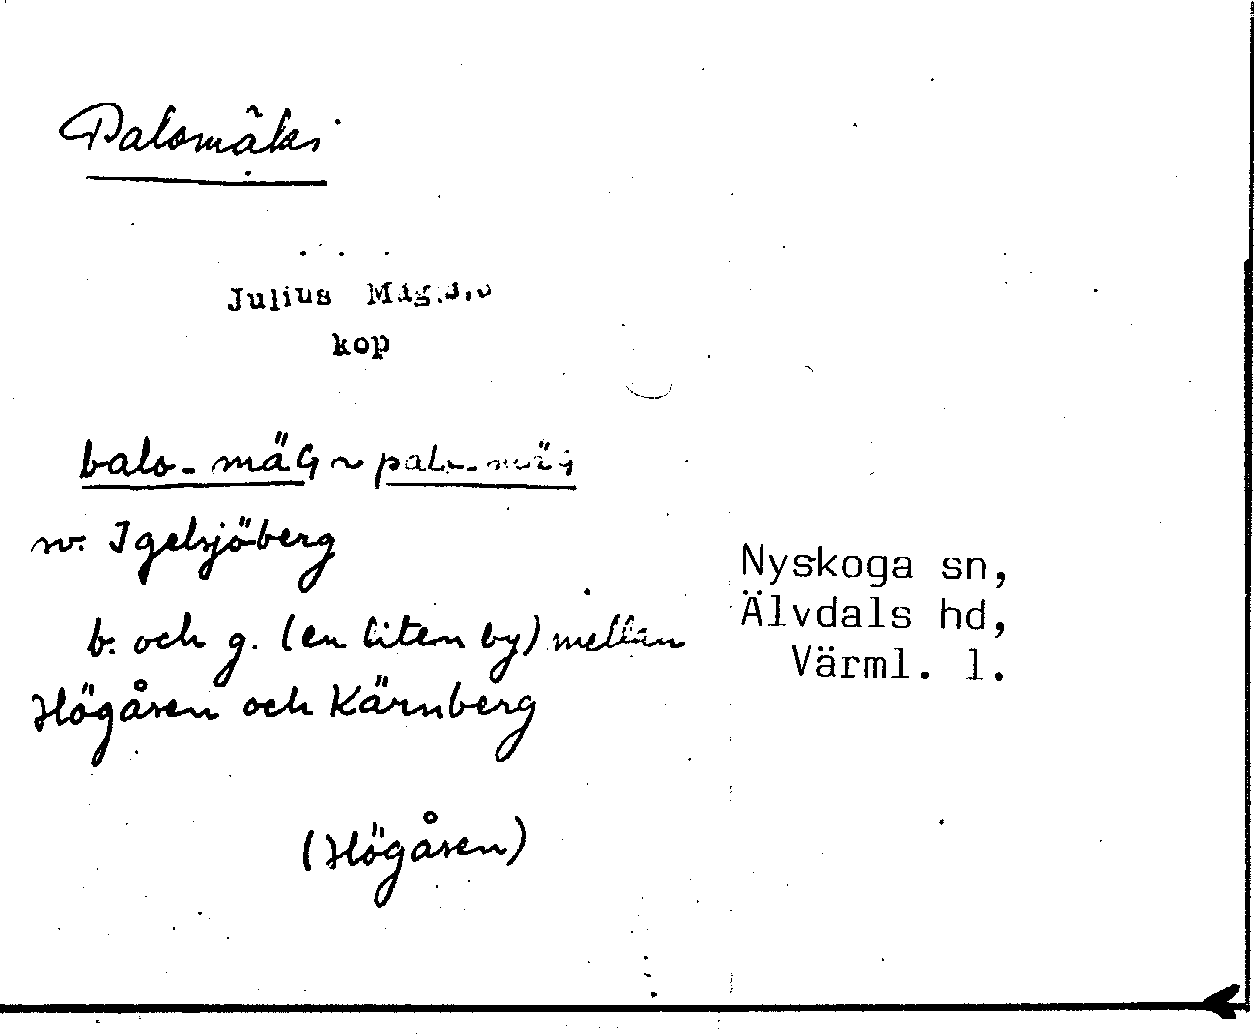 Palomäki
Julius
kop
balo-mäG ~ palo-mäG
sv. Igelsjöberg
b. och g. (en liten by) mellan
Högåsen och Kärnberg
(Högåsen)
Nyskoga sn,
Älvdals hd,
Värml. l.